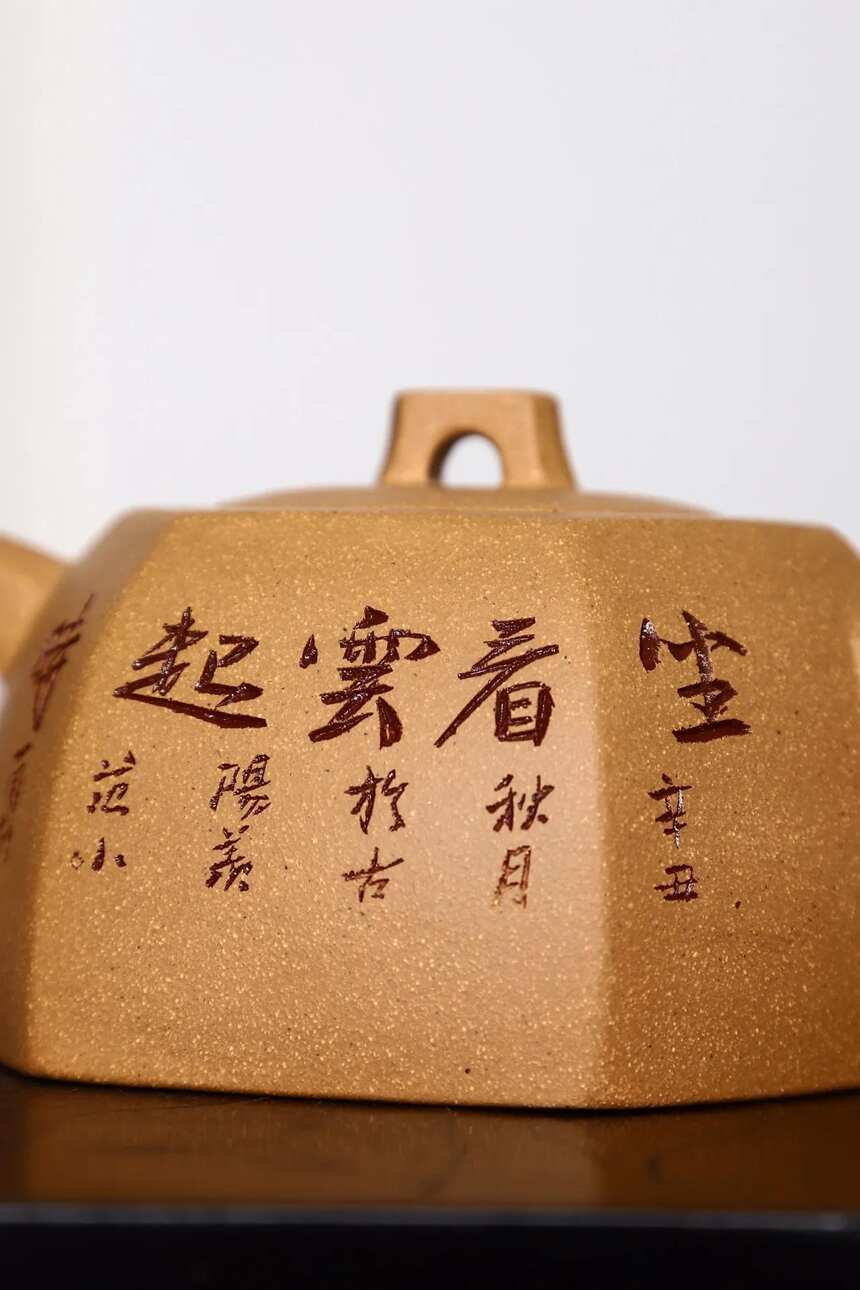 坐看雲起
辛丑
秋月
於古
陽羨
范小